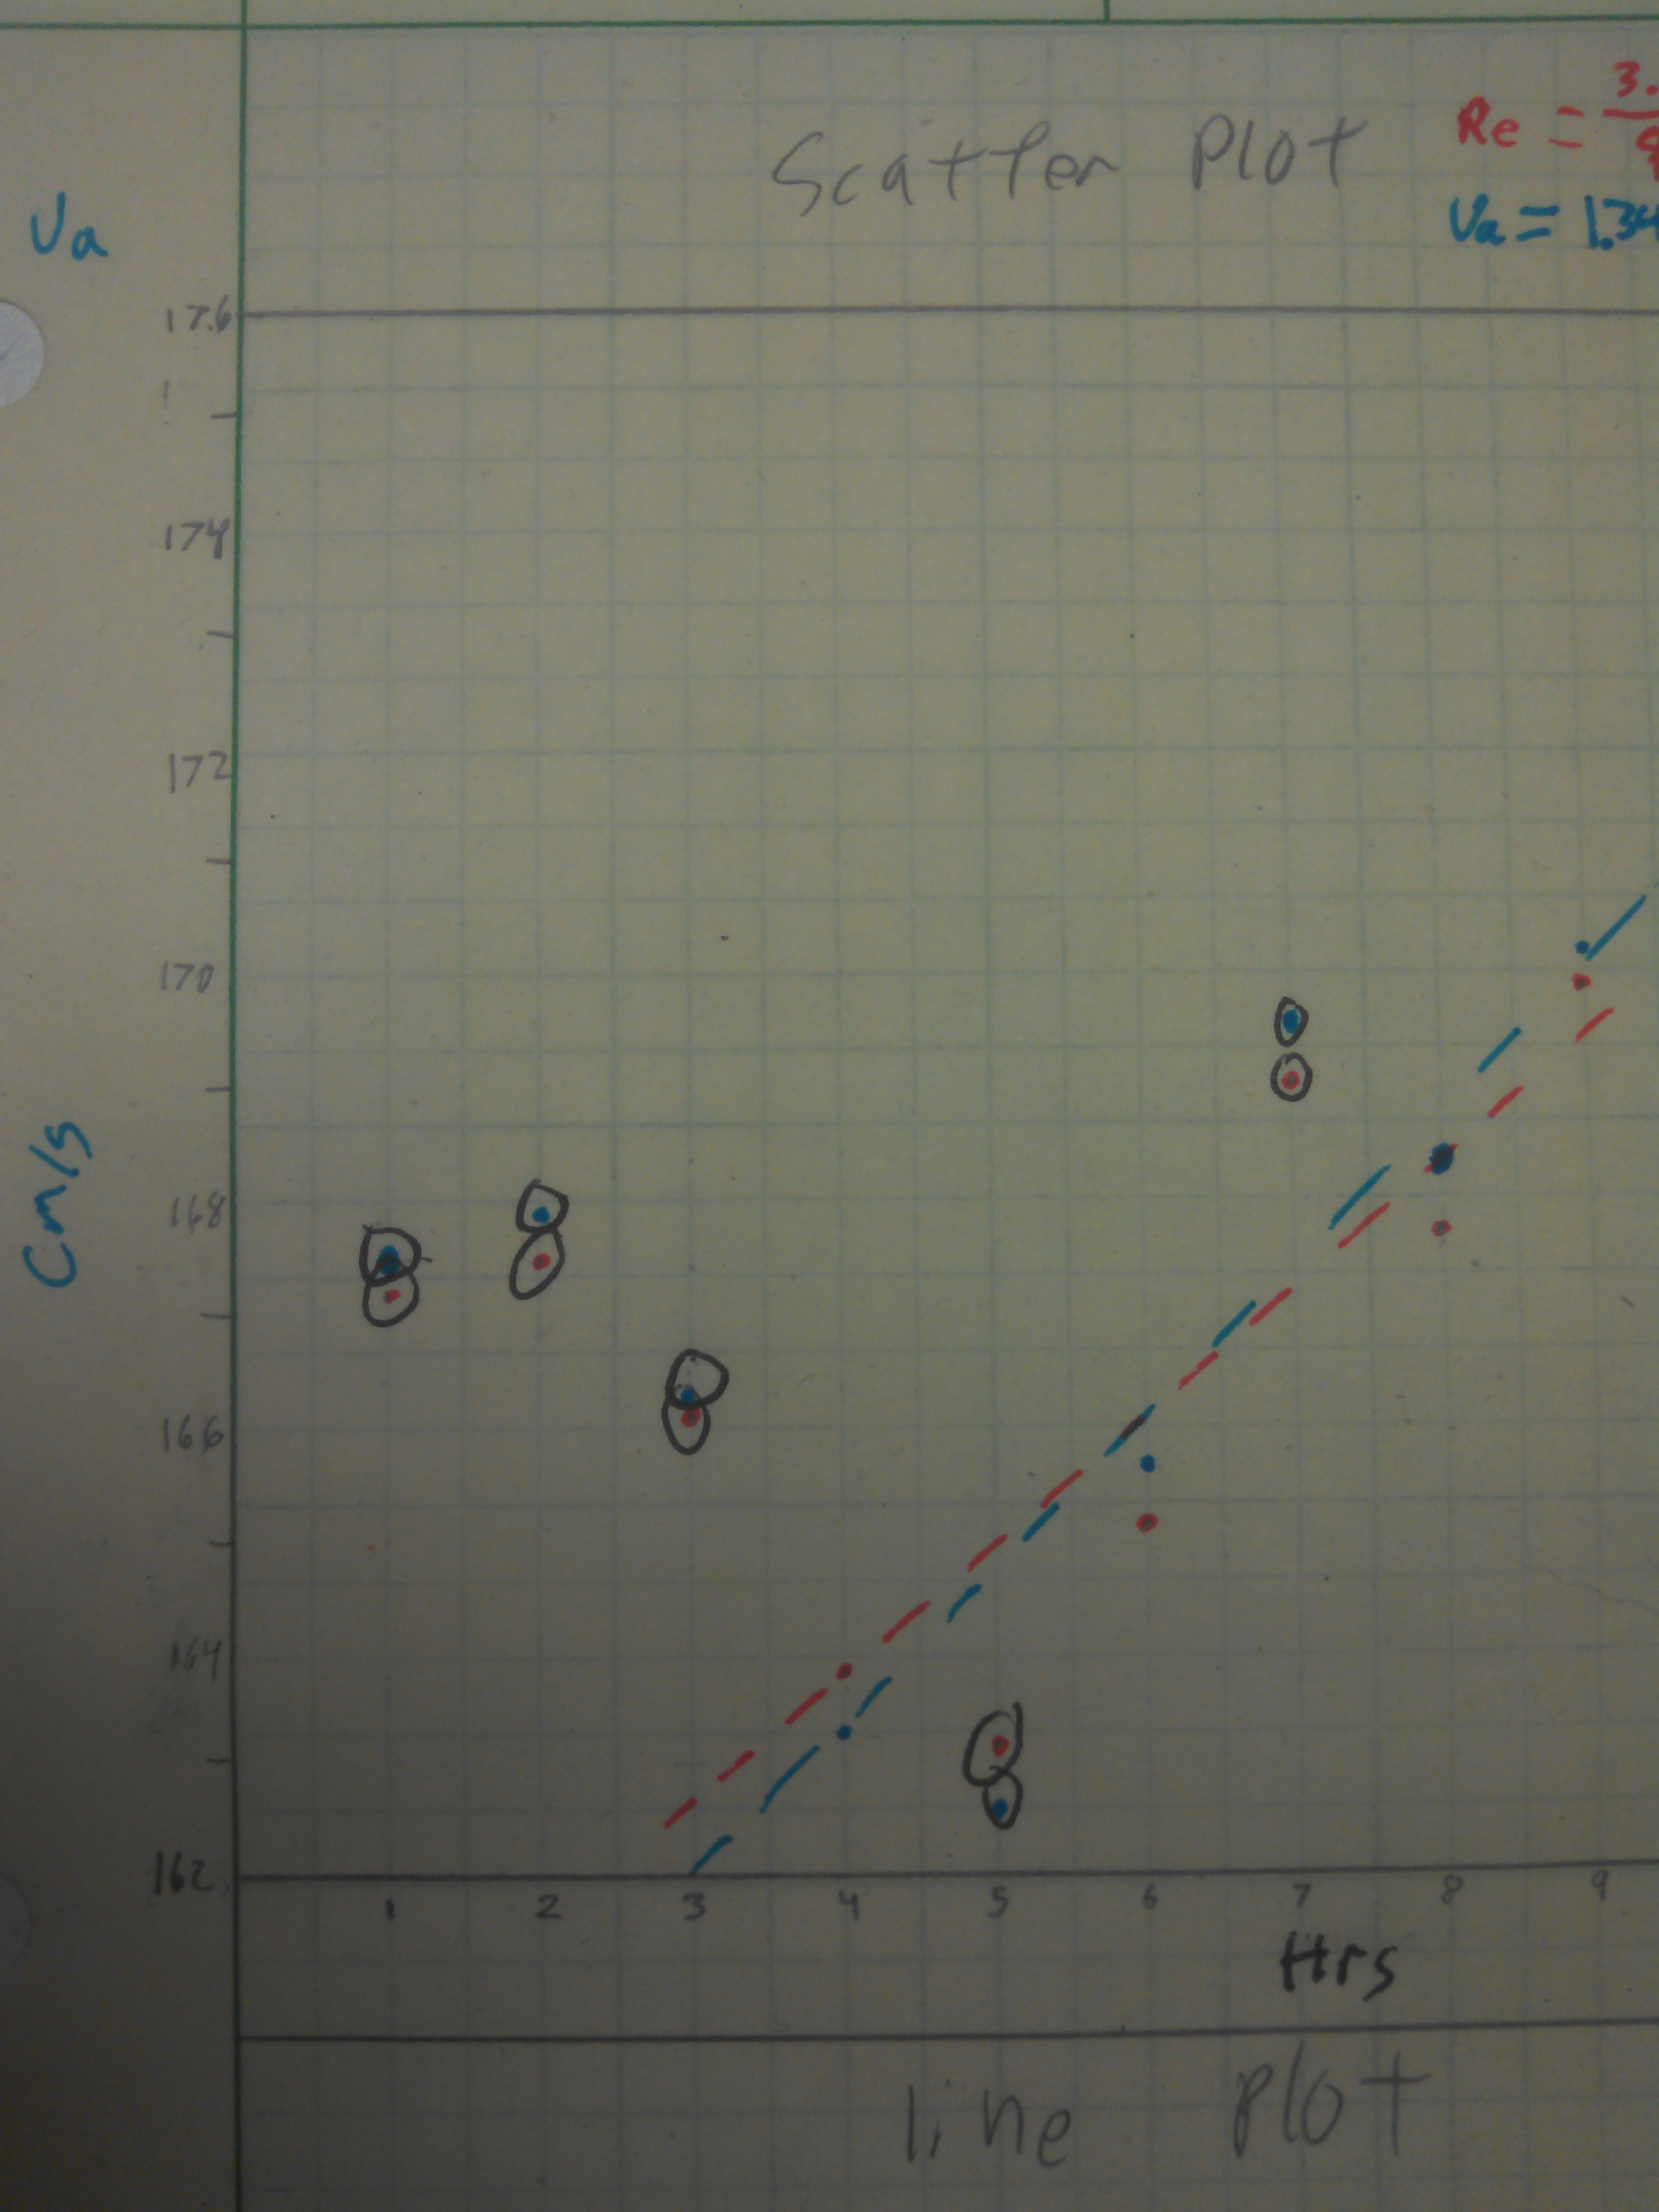 Scatter Plot
Re = 3.
Va = 1.34
Va
17.6
174
172
170
168
166
164
162
Cm/s
1 2 3 4 5 6 7 8 9
Hrs
line Plot